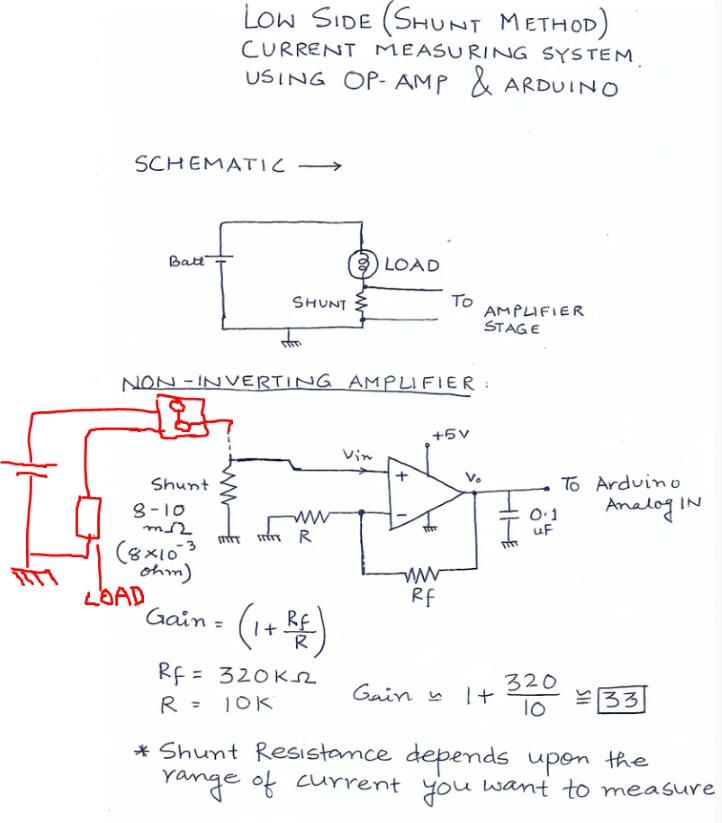 LOW SIDE (SHUNT METHOD)
CURRENT MEASURING SYSTEM.
USING OP-AMP & ARDUINO
SCHEMATIC →
Batt
LOAD
SHUNT
TO AMPLIFIER
STAGE
NON-INVERTING AMPLIFIER:
+5V
Vin
+
Vo
To Arduino
Analog IN
Shunt
8-10
mΩ
(8×10⁻³
ohm)
−
R
0.1
uF
Rf
LOAD
Gain = (1 + Rf/R)
Rf = 320KΩ
R = 10K
Gain ≃ 1 + 320/10 ≅ 33
* Shunt Resistance depends upon the
range of current you want to measure